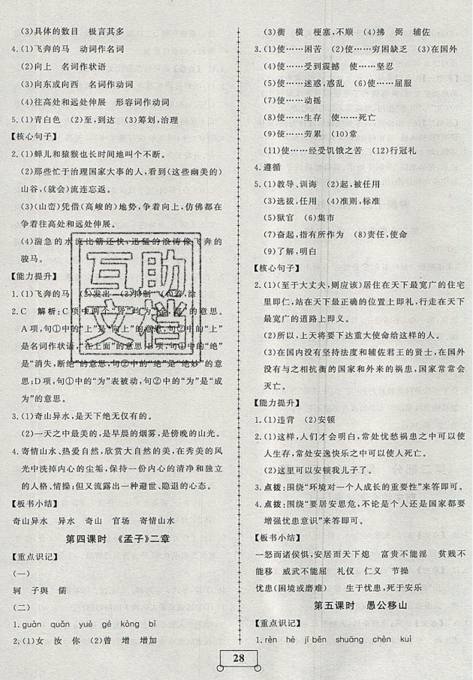 (3)具体的数目　极言其多
4.(1)飞奔的马　动词作名词
(2)向上　名词作状语
(3)向东或向西　名词作动词
(4)往高处和远处伸展　形容词作动词
5.(1)青白色　(2)至,到达　(3)筹划,治理
【核心句子】
2.(1)蝉儿和猿猴也长时间地叫个不断。
(2)那些忙于治理国家大事的人,看到(这些幽美的)
山谷,(就会)流连忘返。
(3)(山峦)凭借(高峻的)地势,争着向上,仿佛都在
争着往高处和远处伸展。
(4)湍急的水流比箭还快,迅猛的浪涛像飞奔的
骏马。
【能力提升】
1.(1)飞奔的马
2.C　解析:C项中两个
A项,句①中的“上”是“向上”的意思,句②中的“上”
是名词作状语,“在上面”的意思;B项,句①中的“绝”
是“消失,断绝”的意思,句②中的“绝”是“绝妙”的意
思;D项,句①中的“为”表被动,句②中的“为”是“成
为”的意思。
3.(1)奇山异水,是天下绝无仅有的。
(2)一天之中最美的,是早晨的烟雾,是傍晚的山光。
4.寄情山水,热爱自然,欣赏大自然的美,在秀美的风
光中洗掉内心的尘垢,保持一个内心的清净和独立
的人格、情操,但又流露出一种避世、隐退的心态。
【板书小结】
奇山异水　异水　奇山　官场　寄情山水
第四课时　《孟子》二章
【重点识记】
(一)
轲　子舆　儒
(二)
1.guāi quān yuè gé kòng bì
2.(1)女　汝　你　(2)曾　增　增加
(3)衡　横　梗塞,不顺　(4)拂　弼　辅佐
4.(1)使……困苦　(2)使……穷困缺乏　(3)在国外
(4)使……受到震撼　使……坚忍
(5)使……迷惑,惑乱　(6)使……屈服
(7)使……动摇
(8)使……生存　使……死亡
(9)使……劳累　(10)穷
(11)使……经受饥饿之苦　(12)行冠礼
4.遵循
5.(1)教导、训诲　(2)起,被任用
(3)选拔,任用　(4)准则,标准
(5)狱官　(6)集市
(7)奋起,指有所作为　(8)责任,使命
(9)了解,明白
【核心句子】
2.(1)(至于大丈夫,则应该)居住在天下最宽广的住宅
里即仁,站在天下最正确的位置上即礼,行走在天下最
宽广的道路上即义。
(2)所以,上天将要下达重大使命给这样的人。
(3)在国内没有坚持法度和辅佐君王的贤士,在国外
没有与之相抗衡的国家和外患,国家常常会
灭亡。
【能力提升】
1.(1)违背　(2)安顿
2.(1)这样,人们才会明白,常处忧愁祸患之中可以使
人生存,常处安逸快乐之中可以使人死亡。
(2)这里可以安顿我儿子了。
3.点拨:围绕“环境对一个人成长的重要性”来答即可。
4.点拨:围绕“要居安思危,不论是个人还是国家都要
增强忧患意识”来答即可。
【板书小结】
一怒而诸侯惧,安居而天下熄　富贵不能淫　贫贱不
能移　威武不能屈　礼仪　仁义　节操
忧患(困境或磨难)　生于忧患,死于安乐
第五课时　愚公移山
【重点识记】
1.rèn hè jǐ bēn shuāng chèn kuì
28
互助
文档